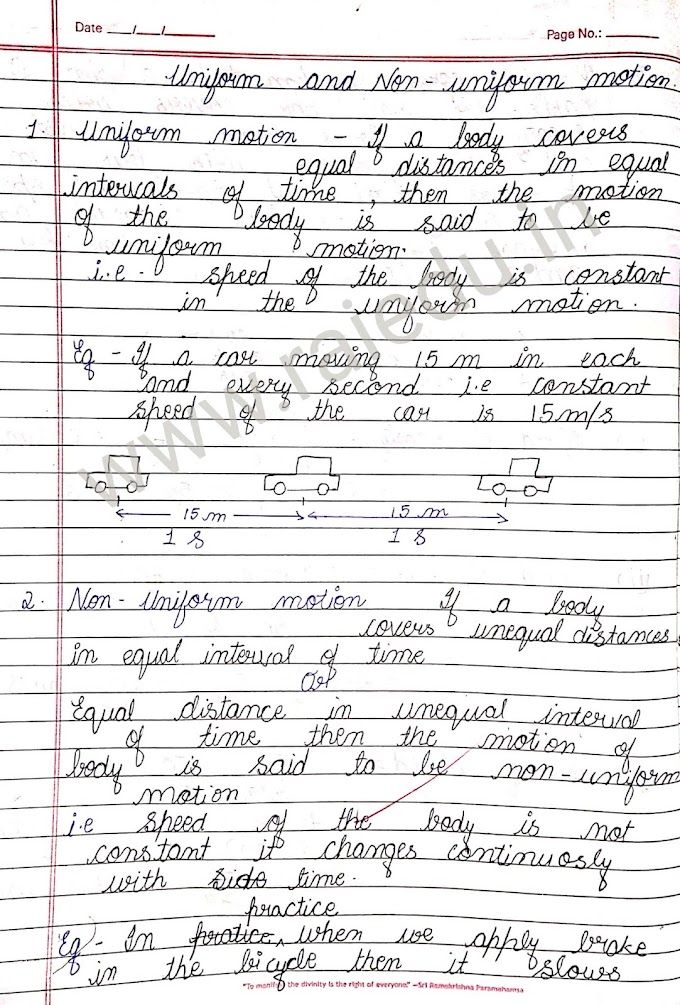 Date __/__/__ Page No.: ____
Uniform and Non-uniform motion.
1. Uniform motion - If a body covers
equal distances in equal
intervals of time, then the motion
of the body is said to be
uniform motion.
i.e. speed of the body is constant
in the uniform motion.
Eg - If a car moving 15 m in each
and every second i.e constant
speed of the car is 15 m/s
15 m 15 m
1 s 1 s
2. Non-Uniform motion If a body
covers unequal distances
in equal interval of time
Or
Equal distance in unequal interval
of time then the motion of
body is said to be non-uniform
motion
i.e speed of the body is not
constant it changes continuosly
with side time.
practice
Eg - In pratice, when we apply brake
in the bicycle then it slows
"To manifest the divinity is the right of everyone." -Sri Ramakrishna Paramahamsa
www.rajedu.in